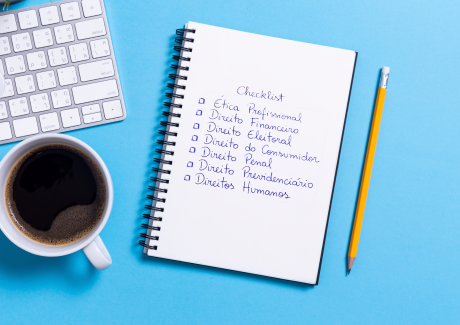 Checklist
Ética Profissional
Direito Financeiro
Direito Eleitoral
Direito do Consumidor
Direito Penal
Direito Previdenciário
Direitos Humanos